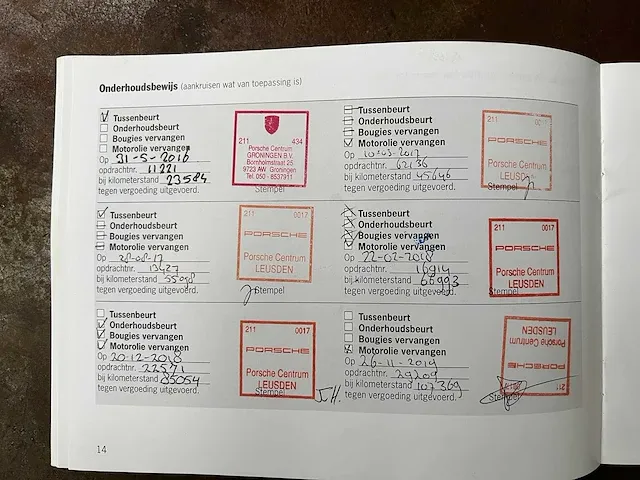 Onderhoudsbewijs (aankruisen wat van toepassing is)
Tussenbeurt
Onderhoudsbeurt
Bougies vervangen
Motorolie vervangen
Op 31-5-2016
opdrachtnr. 11221
bij kilometerstand 23584
tegen vergoeding uitgevoerd.
211 434
Porsche Centrum
GRONINGEN B.V.
Bornholmstraat 25
9723 AW Groningen
Tel. 050 - 8537911
Stempel
Tussenbeurt
Onderhoudsbeurt
Bougies vervangen
Motorolie vervangen
Op 10-03-2017
opdrachtnr. 62136
bij kilometerstand 45646
tegen vergoeding uitgevoerd.
211 0017
PORSCHE
Porsche Centrum
LEUSDEN
Stempel
Tussenbeurt
Onderhoudsbeurt
Bougies vervangen
Motorolie vervangen
Op 28-08-17
opdrachtnr. 13427
bij kilometerstand 55098
tegen vergoeding uitgevoerd.
211 0017
PORSCHE
Porsche Centrum
LEUSDEN
Stempel
Tussenbeurt
Onderhoudsbeurt
Bougies vervangen
Motorolie vervangen
Op 22-02-2018
opdrachtnr. 16914
bij kilometerstand 66993
tegen vergoeding uitgevoerd.
211 0017
PORSCHE
Porsche Centrum
LEUSDEN
Stempel
Tussenbeurt
Onderhoudsbeurt
Bougies vervangen
Motorolie vervangen
Op 20-12-2018
opdrachtnr. 22571
bij kilometerstand 85054
tegen vergoeding uitgevoerd.
211 0017
PORSCHE
Porsche Centrum
LEUSDEN
Stempel
Tussenbeurt
Onderhoudsbeurt
Bougies vervangen
Motorolie vervangen
Op 26-11-2019
opdrachtnr. 29209
bij kilometerstand 107369
tegen vergoeding uitgevoerd.
211
PORSCHE
Porsche Centrum
LEUSDEN
Stempel
14